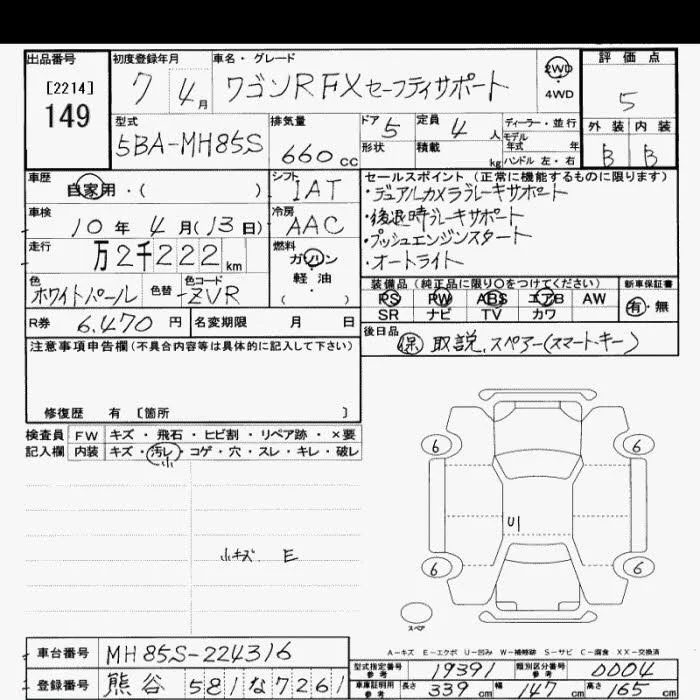 出品番号
[2214]
149
初度登録年月
7 4月
車名・グレード
ワゴンR FX セーフティサポート
2WD
4WD
評価点
5
外装 内装
B B
型式
5BA-MH85S
排気量
660cc
ドア 5
形状
定員 4人
積載 kg
ディーラー・並行
モデル年式 年
ハンドル 左・右
車歴
自家用・( )
シフト
IAT
セールスポイント(正常に機能するものに限ります)
・デュアルカメラブレーキサポート
・後退時ブレーキサポート
・プッシュエンジンスタート
・オートライト
車検
10年4月(13日)
冷房
AAC
走行
万2千222km
燃料
ガソリン
軽油
( )
色
ホワイトパール
色替
色コード
ZVR
装備品(純正品に限り〇をつけてください)
PS PW ABS エアB AW
SR ナビ TV カワ
新車保証書
有・無
R券 6,470円
名変期限 月 日
後日品
保 取説、スペアー(スマートキー)
注意事項申告欄(不具合内容等は具体的に記入して下さい)
修復歴 有 [箇所 ]
検査員記入欄
FW キズ・飛石・ヒビ割・リペア跡・×要
内装 キズ・汚レ・コゲ・穴・スレ・キレ・破レ
小
小キズ E
6 6
U1
6 6
スペア
A-キズ E-エクボ U-凹み W-補修跡 S-サビ C-腐食 XX-交換済
車台番号 MH85S-224316
登録番号 熊谷 581 な 7261
型式指定番号 参考 19391
類別区分番号 参考 0004
車庫証明用 参考 長さ 339cm 幅 147cm 高さ 165cm